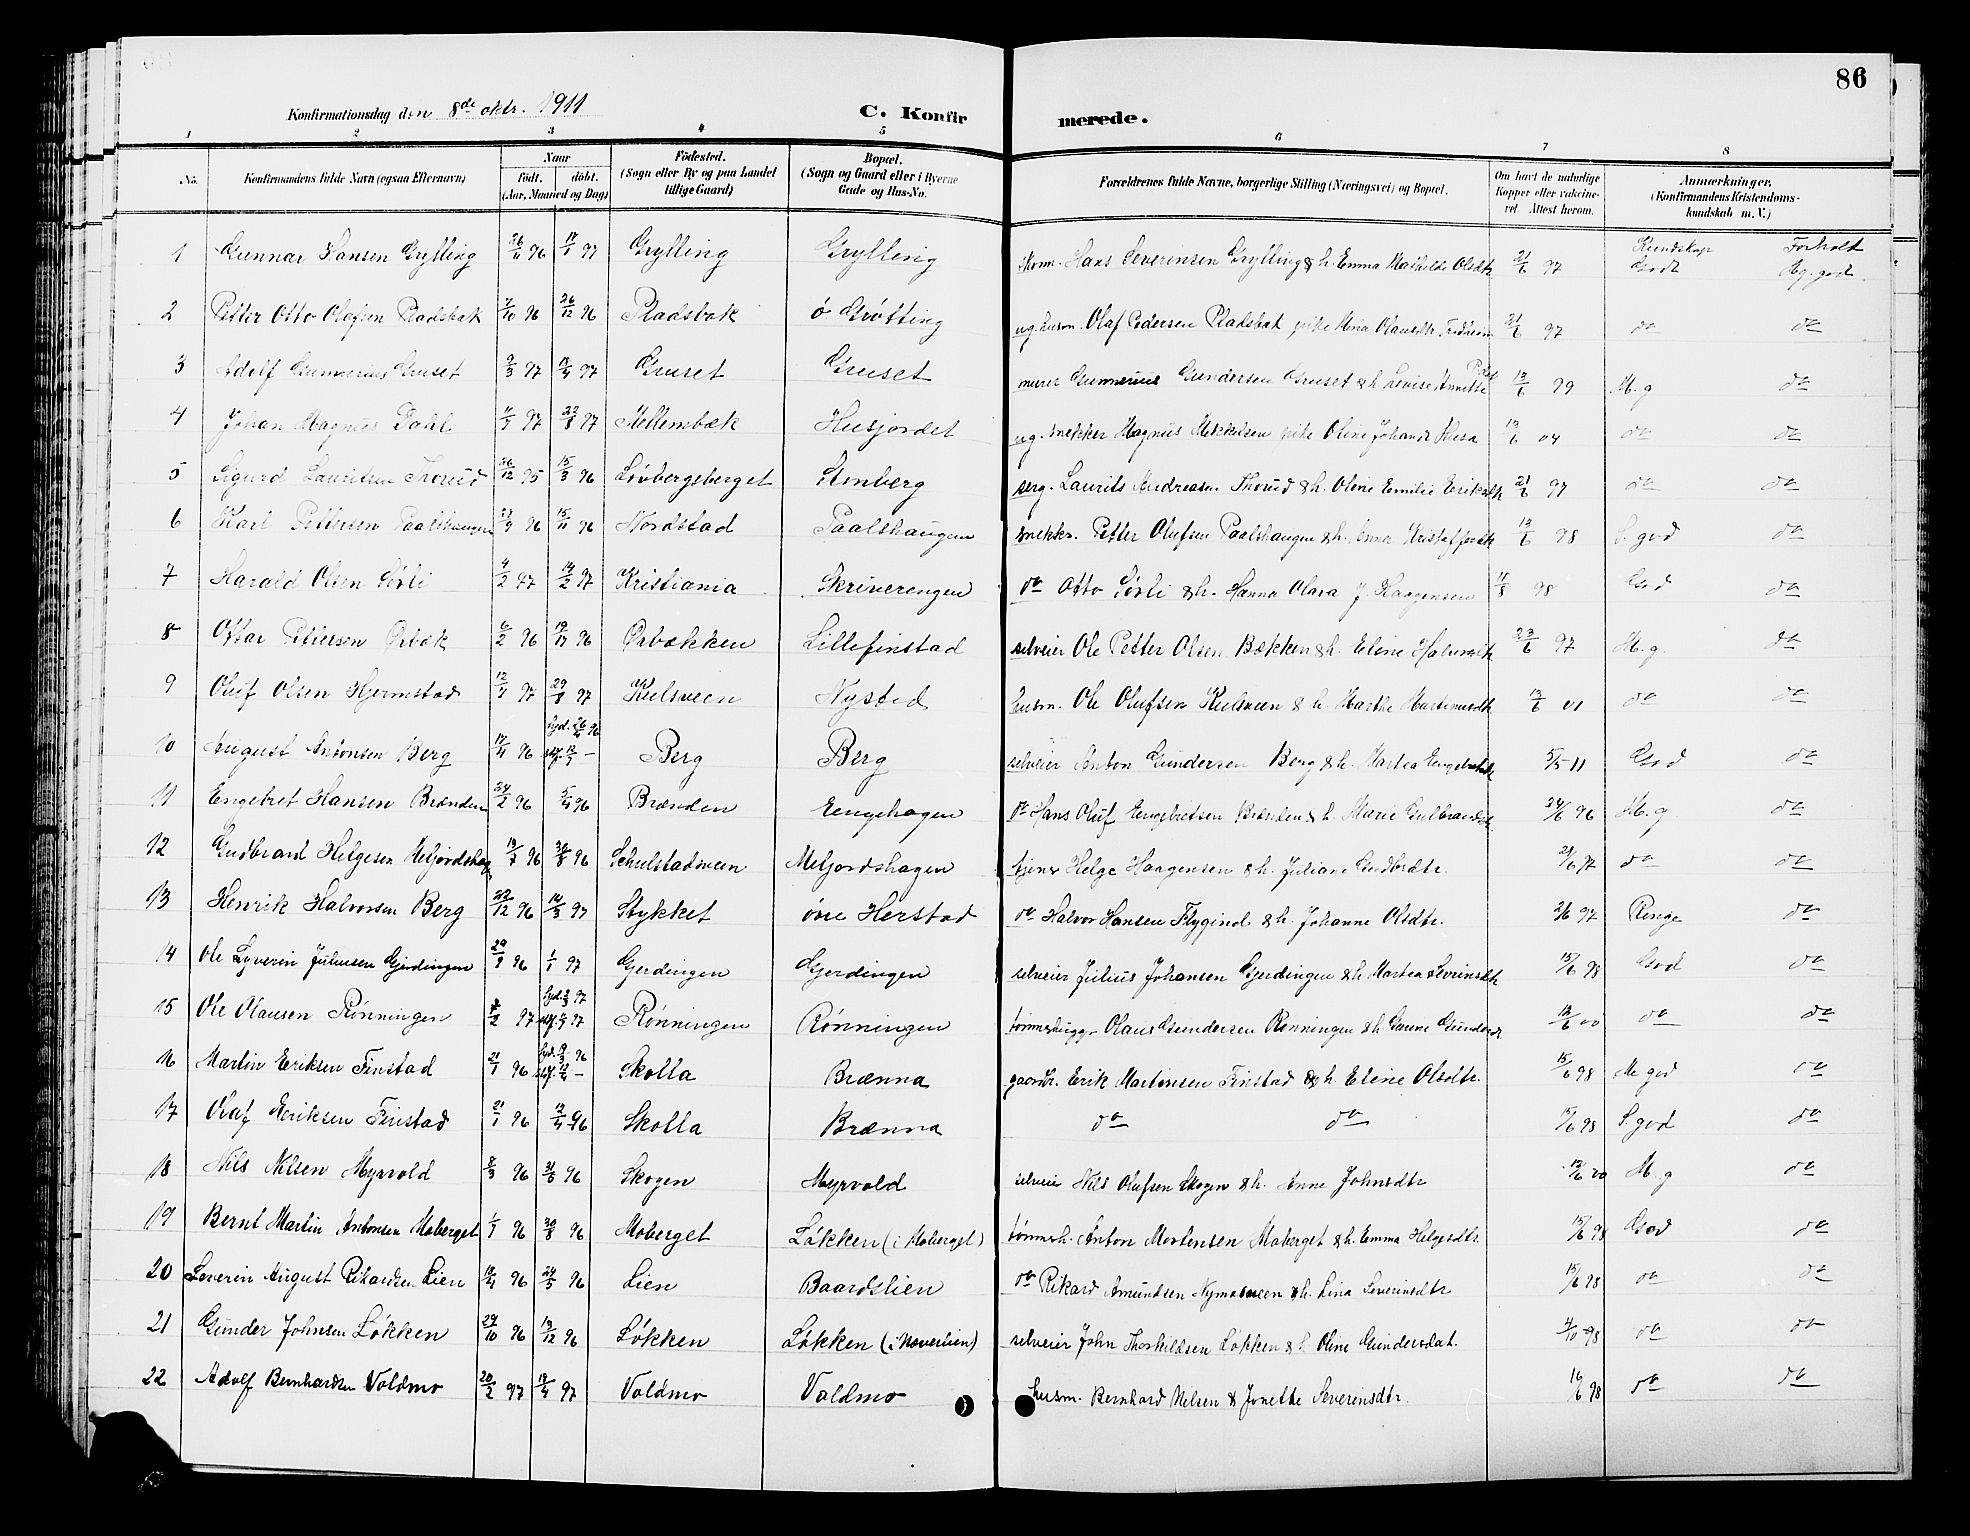 86
Konfirmationsdag den 8de oktr. 1911 C. Konfirmerede.
1 2 3 4 5 6 7 8
No. Konfirmandens fulde Navn (ogsaa Efternavn) Naar født. døbt. (Aar, Maaned og Dag) Fødested. (Sogn eller By og paa Landet tillige Gaard) Bopæl. (Sogn og Gaard eller i Byerne Gade og Hus-No. Forældrenes fulde Navne, borgerlige Stilling (Næringsvei) og Bopæl. Om havt de naturlige Kopper eller vaccineret Attest herom. Anmærkninger. (Konfirmandens Kristendomskundskab m. V.)
Kundskap Forholt
1 Gunnar Hansen Grylling 26/11 96 17/1 97 Grylling Grylling Hans Severinsen Grylling & h. Emma Mathilde Olsdtr 21/6 97 Godt Mg. god
2 Petter Otto Olafsen Pladsbak 7/10 96 26/12 96 Pladsbak ø Grøtting ug. husm. Olaf Pedersen Pladsbak pike Mina Olausdtr. 21/6 97 do do
3 Adolf Gunnerius Gruset 9/3 97 Gruset Gruset murer Gunnerius Gundersen Gruset & h. Lovise Annette 13/6 99 M. g do
4 Johan Magnus Dahl 97 22/8 97 Mellembæk Husjordet ug. snekker Magnus Mikkelsen pike Oline Johansd Husa 13/6 04 do do
5 Sigurd Lauritsen Thorud 26/12 95 15/3 96 Løvbergsberget Stenberg serg. Laurits Andreasen Thorud & h. Oline Emilie Eriksdtr 21/6 97 do do
6 Karl Pettersen Paalshaugen 96 15/11 96 Nordstad Paalshaugen snekkr. Petter Olufsen Paalshaugen & h. Anna Kristoffersdtr 13/6 98 S. god do
7 Harald Olsen Sørli 4/2 97 14/2 97 Kristiania Skriverengen do Otto Sørli & h. Hanna Olava J. Haagensen 98 God do
8 Ottar Pettersen Ørbæk 6/2 96 96 Ørbækken Lillefinstad selveier Ole Petter Olsen Bækken & h. Eline Halvorsdtr 23/6 97 M. g. do
9 Oluf Olsen Hjermstad 97 29/8 97 Kulsveen Nysted husm. Ole Olufsen Kulsveen & h. Marthe Martinusdtr 13/6 01 do do
10 August Antonsen Berg 17/4 96 hjd. 26/4 96 Berg Berg selveier Anton Gundersen Berg & h. Martea Engebretsdtr 5/5 11 God do
11 Engebret Hansen Brænden 24/2 96 5/4 96 Brænden Eengehagen do Hans Oluf Engebretsen Brænden & h. Marie Gulbrandsdtr 24/6 96 M. g do
12 Gudbrand Helgesen Meljordshag 96 30/8 96 Schulstadsveen Meljordshagen tjener Helge Haagensen & h. Juliane Gudbrdtr. 97 do do
13 Henrik Halvorsen Berg 22/12 96 14/3 97 Stykket øvre Herstad do Halvor Hansen Flygind & h. Johanne Olsdtr. 97 Ringe do
14 Ole Syverin Juliusen Gjerdingen 29/9 96 1/1 97 Gjerdingen Gjerdingen selveier Julius Johansen Gjerdingen & h. Martea Severinsdtr 15/6 98 God do
15 Ole Olausen Rønningen 97 Rønningen Rønningen tømmerhugger Olaus Gundersen Rønningen & h. Gundersdtr 13/6 00 do do
16 Martin Eriksen Finstad 21/1 96 Skolla Brænna gaardbr. Erik Martinsen Finstad & h Eline Olsdtr. 15/6 98 M. god do
17 Olaf Eriksen Finstad 21/1 96 12/4 96 Skolla Brænna do do 15/6 98 S. god do
18 Nils Nilsen Myrvold 8/3 96 31/5 96 Skogen Myrvold selveier Nils Olufsen Skogen & h. Anne Johnsdtr 13/6 00 M. g do
19 Bernt Martin Antonsen Moberget 96 30/8 96 Moberget Løkken (i Moberget) tømmerh. Anton Mortensen Moberget & h. Emma Helgesdtr. 15/6 98 God do
20 Severin August Rikardsen Lien 19/4 96 24/5 96 Lien Baardslien do Rikard Amundsen Nymosveen & h. Lina Severinsdtr 15/6 98 do do
21 Gunder Johnsen Løkken 29/10 96 13/12 96 Løkken Løkken (i Noverlien) selveier John Thorkildsen Løkken & h Oline Gundersdat. 4/10 98 do do
22 Adolf Bernhardsen Voldmo 20/2 97 97 Voldmo Voldmo husm. Bernhard Nilsen & Jonette Severinsdtr. 16/6 98 do do